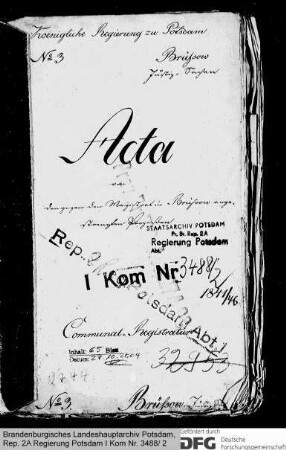 Koenigliche Regierung zu Potsdam
No 3 Brüssow
Justiz-Sachen
Acta
den gegen den Magistrat in Brüssow
Prozesse
STAATSARCHIV POTSDAM
Pr. Br. Rep. 2A
Regierung Potsdam
Abt.
Rep. 2 Potsdam Abt. I
I Kom Nr 3488/2
1841/46
Communal-Registratur
Inhalt: 65 Blatt
Datum:
No 3. Brüssow
Brandenburgisches Landeshauptarchiv Potsdam,
Rep. 2A Regierung Potsdam I Kom Nr. 3488/ 2
Gefördert durch
DFG Deutsche
Forschungsgemeinschaft